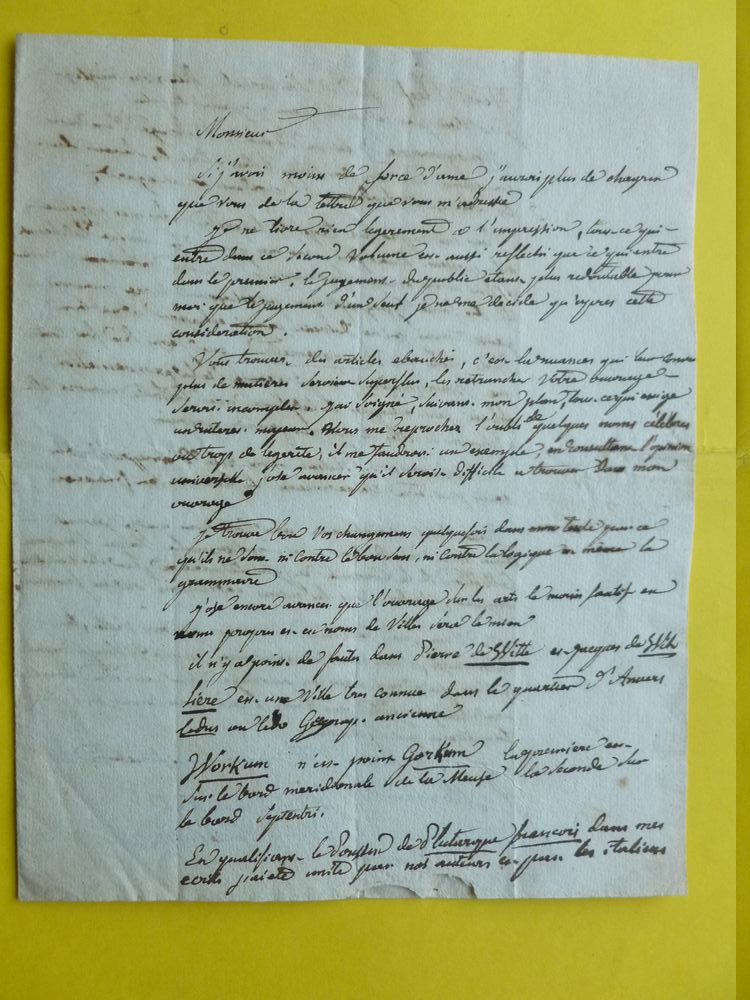 Monsieur
Si j'avois moins de force d'ame j'aurois plus de chagrin
que vous de la lettre que vous m'adressé
je ne livre rien legerement a l'impression, tous ce qui
entre dans ce second volume est aussi reflechi que ce qui entre
dans le premier. le jugement du public etant plus redoutable pour
moi que le jugement d'un seul je ne me decide qu'apres cette
consideration.
Vous trouvez des articles ebauchés, c'est la nuances qui leur
plus de matieres seroient superflus, les retrancher votre ouvrage
seroit incomplet. j'ai soigné, suivant mon plan, tous ce qui exige
un interet majeur. Vous me reprochez l'oubli de quelques noms célebres
ou trop de legereté, il me faudroit un exemple, en consultant l'opinion
universelle j'ose avancer qu'il seroit difficile a trouver dans mon
ouvrage
je trouve bien vos changemens quelquefois dans mon texte parce
qu'ils ne sont ni contre le bon sens, ni contre la logique et même la
grammaire
j'ose encore avancer que l'ouvrage sur les arts le moin fautif en
noms propres et en noms de Villes sera le mien
il n'y a point de fautes dans Pierre de Witte et Jacques de Wit
Liere est une Ville tres connue dans le quartier d'Anvers
Ledus ou Ledo Geograp. ancienne
Workum n'est point Gorkum la premiere est
sur le bord meridionale de la Meuse la seconde sur
le bord septentri.
En qualifiant le Poussin de Plutarque françois dans mes
ecrits j'ai eté imité par nos auteurs et par les italiens